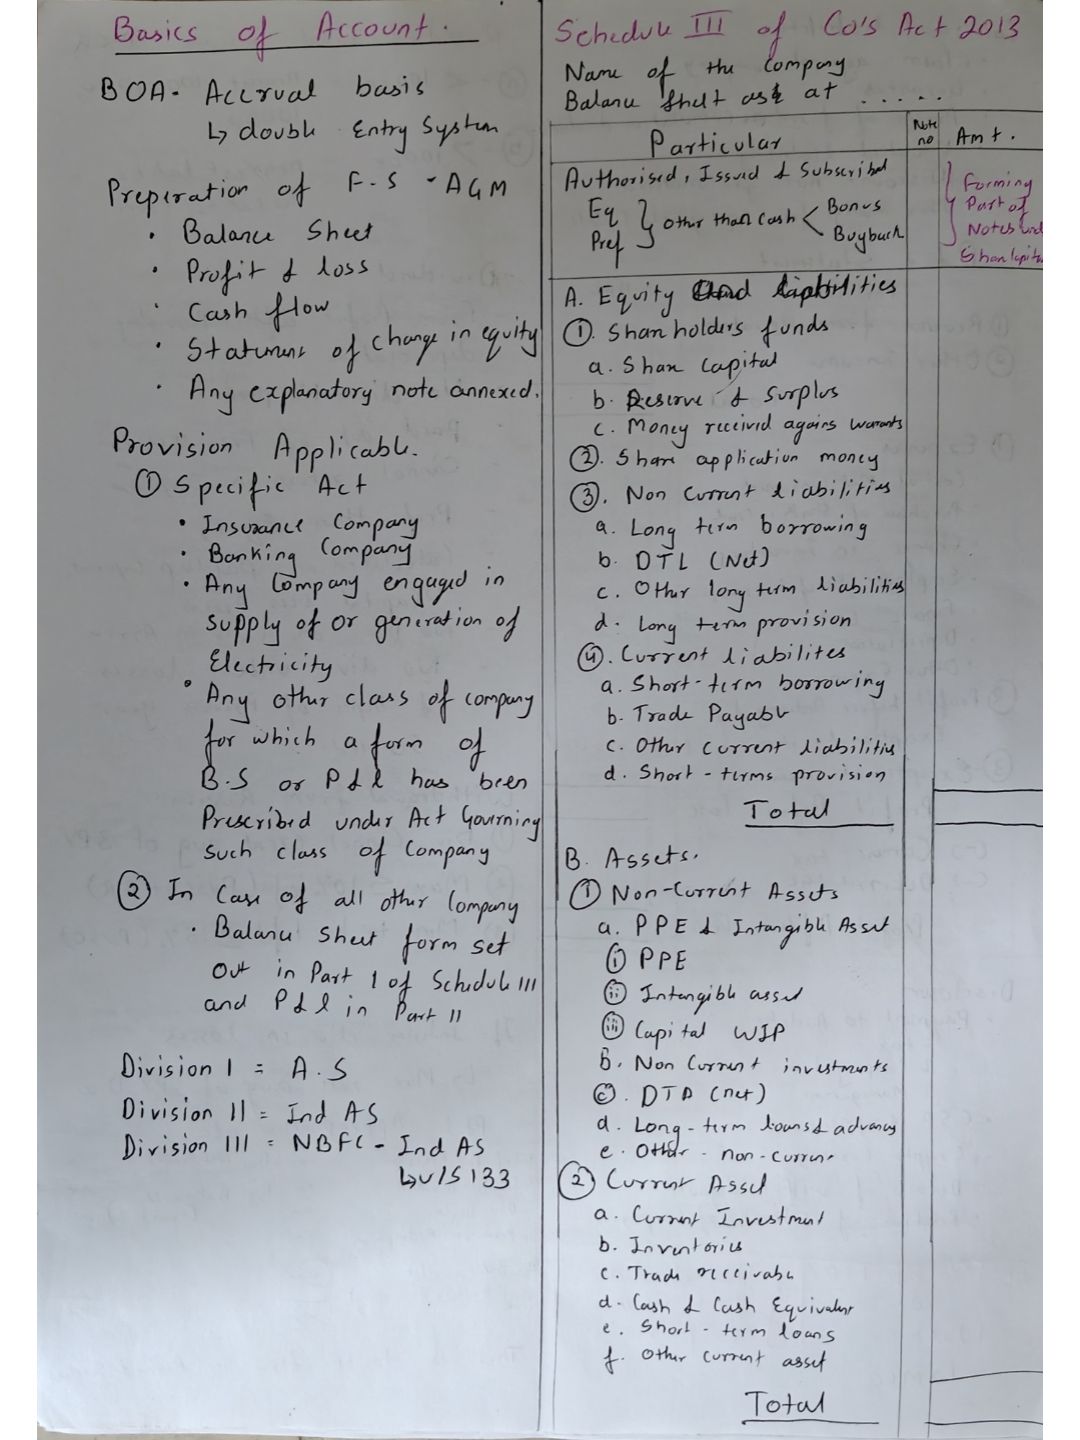 Basics of Account.
BOA - Accrual basis
↳ double Entry System
Preperation of F.S - AGM
• Balance Sheet
• Profit & loss
• Cash flow
• Statement of change in equity
• Any explanatory note annexed.
Provision Applicable.
① Specific Act
• Insurance Company
• Banking Company
• Any Company engaged in
supply of or generation of
Electricity
• Any other class of company
for which a form of
B.S or P&l has been
Prescribed under Act Governing
such class of Company
② In Case of all other Company
• Balance Sheet form set
Out in Part 1 of Schedule III
and P&l in Part II
Division I = A.S
Division II = Ind AS
Division III = NBFC - Ind AS
↳ u/s 133
Schedule III of Co's Act 2013
Name of the Company
Balance Sheet as at .....
Particular Note no Amt.
Authorised, Issued & Subscribed
Eq
Pref } other than cash < Bonus
Buyback
Forming
Part of
Notes
Share Capital
A. Equity and liabilities
①. Shareholders funds
a. Share Capital
b. Reserve & Surplus
c. Money received agains warants
②. Share application money
③. Non Current liabilities
a. Long term borrowing
b. DTL (Net)
c. Other long term liabilities
d. Long term provision
④. Current liabilites
a. Short-term borrowing
b. Trade Payable
c. Other current liabilities
d. Short-terms provision
Total
B. Assets.
① Non-Current Assets
a. PPE & Intangible Asset
ⓘ PPE
ⓘⓘ Intangible asset
ⓘⓘⓘ Capital WIP
b. Non Current investments
ⓒ. DTA (net)
d. Long-term loans & advancs
e. Other - non-current
② Current Asset
a. Current Investment
b. Inventories
c. Trade receivable
d. Cash & Cash Equivalent
e. Short-term loans
f. Other current asset
Total